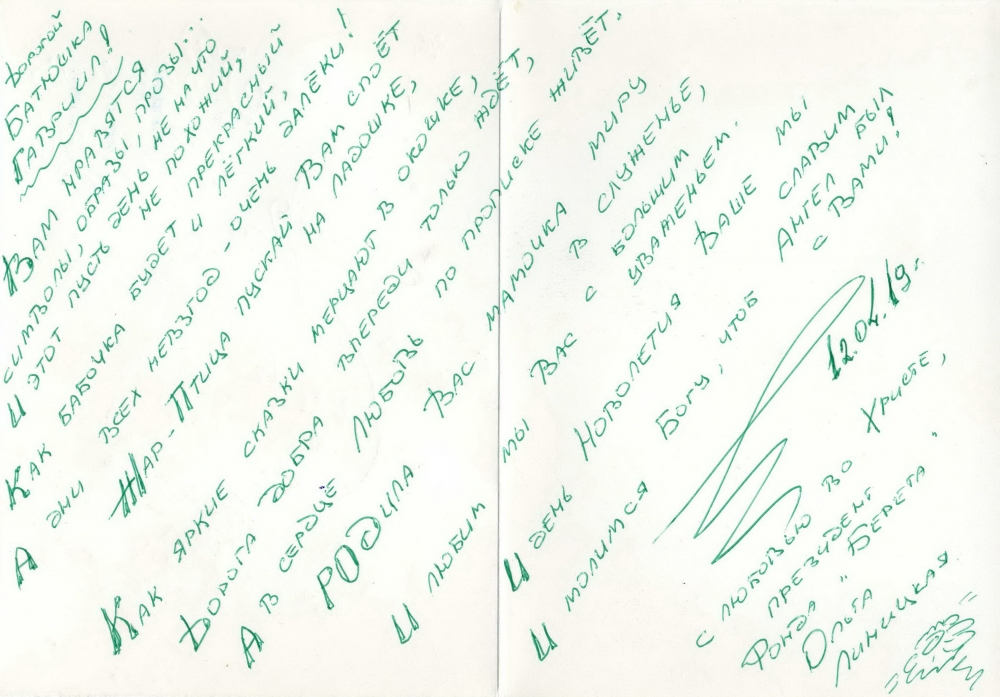 Дорогой
Батюшка
Гавриил!
Вам нравятся
символы, образы, прозы...
И этот пусть день не на что
не похожий,
Как бабочка будет и прекрасный
лёгкий,
А дни всех невзгод - очень далёки!
Жар-Птица пускай Вам споёт
на ладошке,
Как яркие сказки мерцают в окошке,
Дорога добра впереди только ждёт,
А в сердце любовь по прописке живёт.
Родила Вас мамочка миру
в служенье,
И любим мы Вас с большим
уваженьем.
И день Новолетия Ваше мы
славим
И молимся Богу, чтоб Ангел был
с Вами!
12.04.19г.
С любовью во Христе,
президент
Фонда "Берега"
Ольга
Линицкая